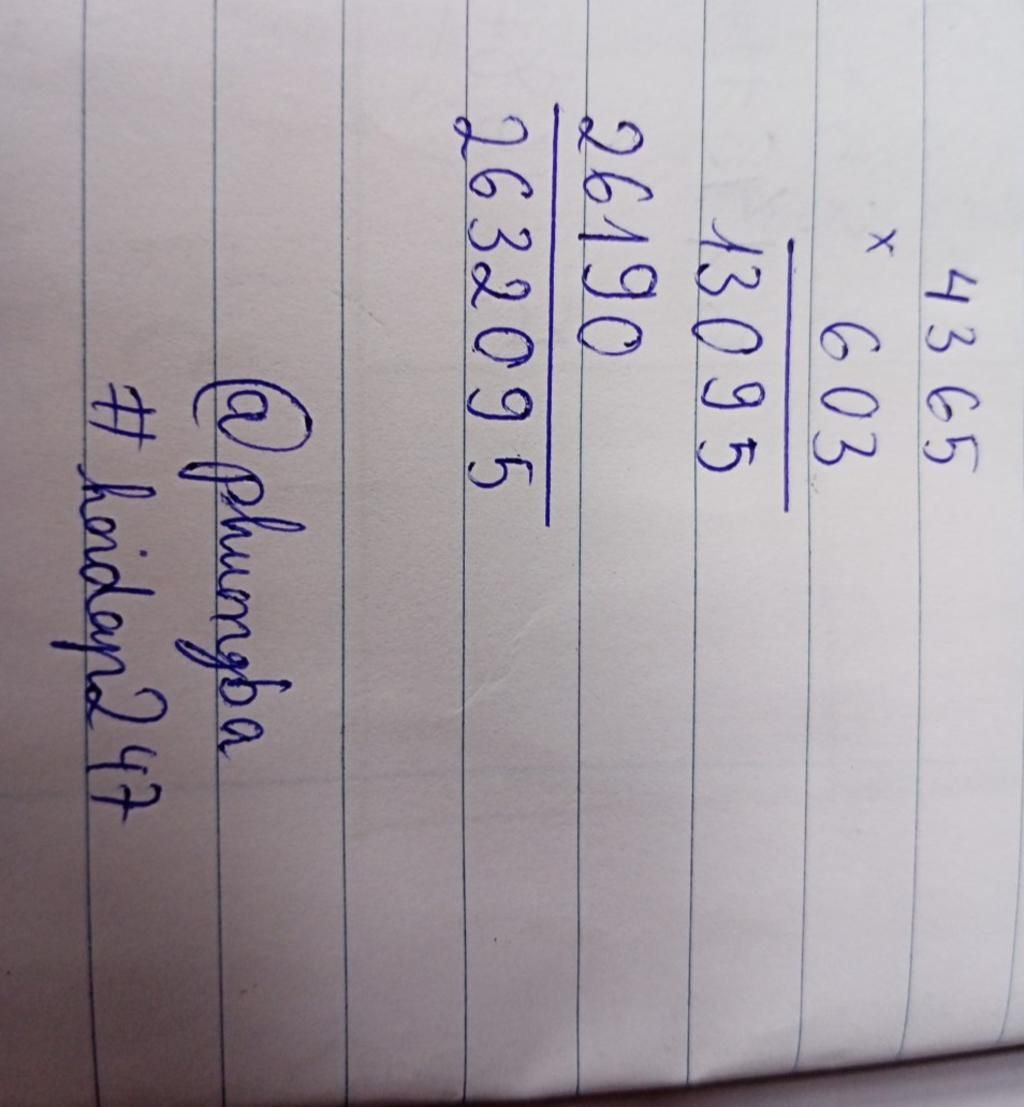 4365
× 603
13095
26190
2632095
@phungba
# hoidap247